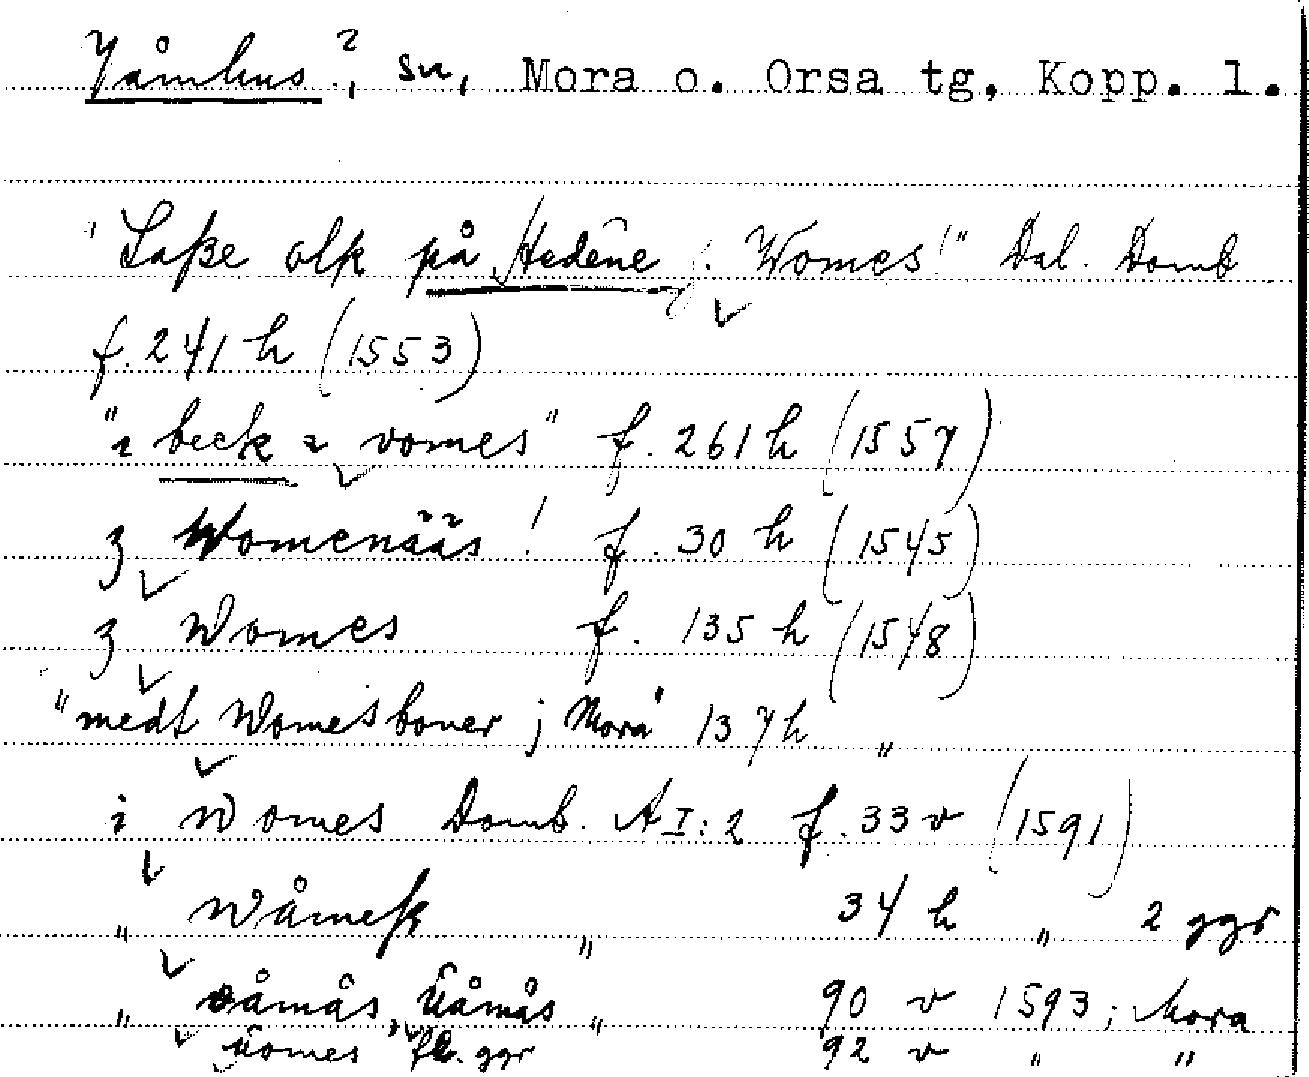 Våmhus ?, sn, Mora o. Orsa tg, Kopp. l.
"Laſße olſs på Hedene j. Womes!" Dal. Domb
f. 241 h (1553)
"i beck i vomes" f. 261 h (1557)
ʒ Womenääs! f. 30 h (1545)
ʒ Womes f. 135 h (1548)
"medt Womesboner j Mora" 137 h "
i Womes Domb. A I:2 f. 33 v (1591)
" Wåmeſs " 34 h " 2 ggr
" våmås, Üåmås " 90 v 1593; Mora
Üomes fl. ggr 92 v " "